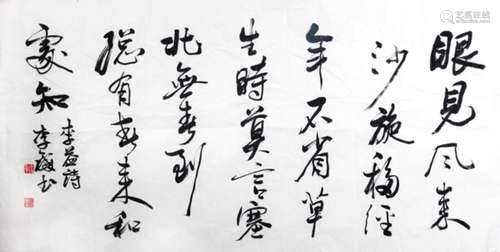 眼見风来
沙旋移經
年不省草
生時莫言塞
北無春到
總有春来和
處知
李益詩
李书